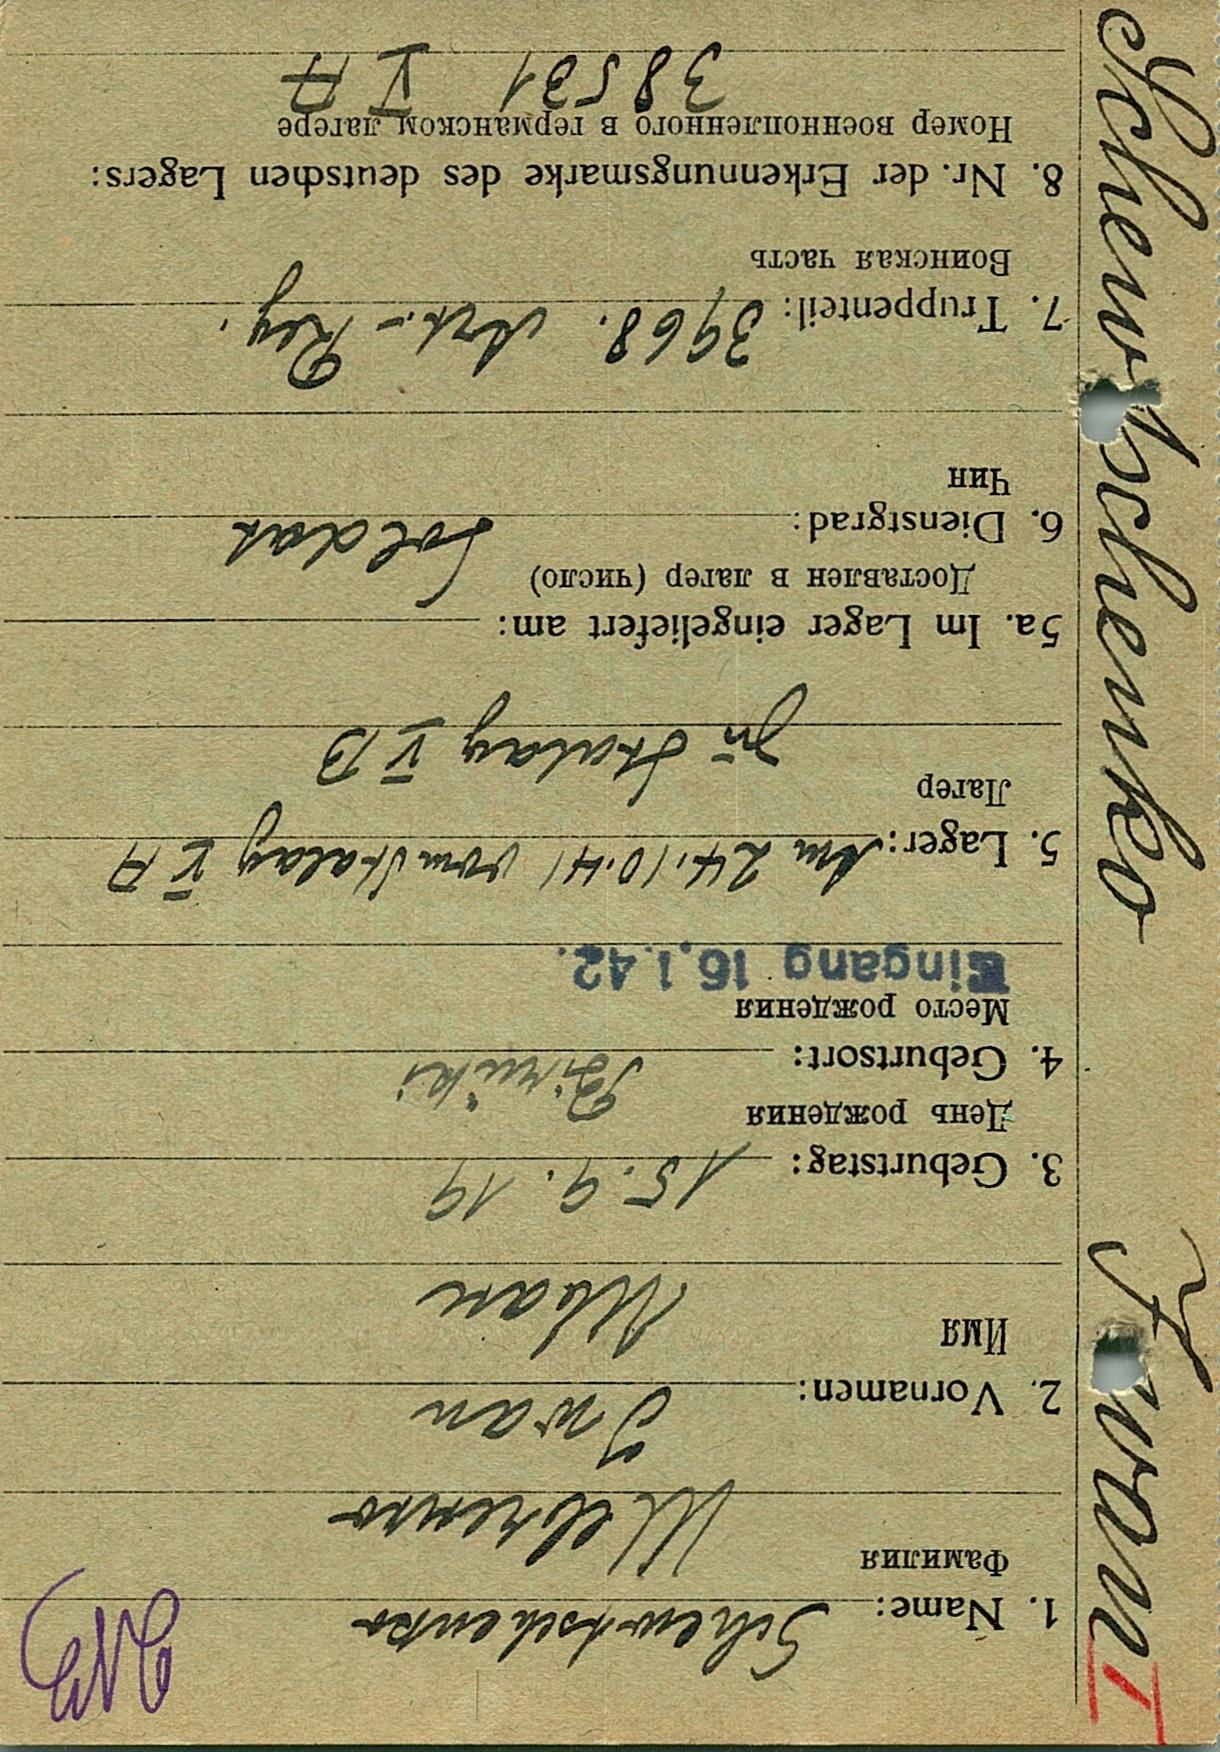 Schewtschenko Iwan I
1. Name: Schewtschenko
Фамилия
Шевченко
2. Vornamen: Iwan
Имя
Иван
3. Geburtstag: 15.9.19
День рождения
4. Geburtsort:
Место рождения
Eingang 16.1.42.
5. Lager: Am 24.10.41 vom Stalag V A
Лагер
zu Stalag V B
5a. Im Lager eingeliefert am:
Доставлен в лагер (число)
6. Dienstgrad: Soldat
Чин
7. Truppenteil: 3968. Art.- Reg.
Воинская часть
8. Nr. der Erkennungsmarke des deutschen Lagers:
Номер военнопленного в германском лагере
38531 V A